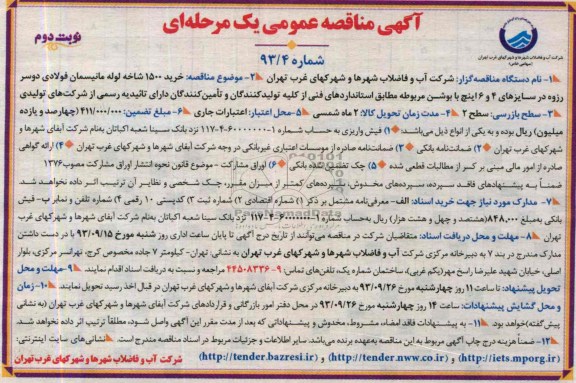 آگهی مناقصه عمومی یک مرحله‌ای
نوبت دوم
شماره ۹۳/۴
شرکت آب و فاضلاب شهرها و شهرکهای غرب تهران
(سهامی خاص)
۱- نام دستگاه مناقصه‌گزار: شرکت آب و فاضلاب شهرها و شهرکهای غرب تهران ۲- موضوع مناقصه: خرید ۱۵۰۰ شاخه لوله مانیسمان فولادی دوسر
رزوه در سایزهای ۴ و ۶ اینچ با بوشن مربوطه مطابق استانداردهای فنی از کلیه تولیدکنندگان و تأمین‌کنندگان دارای تائیدیه رسمی از شرکت‌های تولیدی
۳- سطح بازرسی: سطح ۲ ۴- مدت زمان تحویل کالا: ۲ ماه شمسی ۵- محل اعتبار: اعتبارات جاری ۶- مبلغ تضمین: ۴۱۱/۰۰۰/۰۰۰ (چهارصد و یازده
میلیون) ریال بوده و به یکی از انواع ذیل می‌باشد: ۱) فیش واریزی به حساب شماره ۱-۶۰۰۰۰۰۰-۴-۱۱۷ نزد بانک سینا شعبه اکباتان به‌نام شرکت آبفای شهرها و
شهرکهای غرب تهران ۲) ضمانت‌نامه بانکی ۳) ضمانت‌نامه صادره از موسسات اعتباری غیربانکی در وجه شرکت آبفای شهرها و شهرکهای غرب تهران ۴) ارائه گواهی
صادره از امور مالی مبنی بر کسر از مطالبات قطعی شده ۵) چک تضمین شده بانکی ۶) اوراق مشارکت - موضوع قانون نحوه انتشار اوراق مشارکت مصوب ۱۳۷۶
ضمناً به پیشنهادهای فاقد سپرده، سپرده‌های مخدوش، سپرده‌های کمتر از میزان مقرر، چک شخصی و نظایر آن ترتیب اثر داده نخواهد شد.
۷- مدارک مورد نیاز جهت خرید اسناد: الف - معرفی‌نامه مشتمل بر ذکر ۱) شماره اقتصادی ۲) شماره ثبت ۳) کدپستی ۱۰ رقمی ۴) شماره تلفن و نمابر ب- فیش
بانکی به‌مبلغ ۸۴۸,۰۰۰ (هشتصد و چهل و هشت هزار) ریال به‌حساب شماره ۱-۶۰۰۰۰۰۰-۴-۱۱۷ نزد بانک سینا شعبه اکباتان به‌نام شرکت آبفای شهرها و شهرکهای غرب
تهران ۸- مهلت و محل دریافت اسناد: متقاضیان شرکت در مناقصه می‌توانند از تاریخ درج آگهی تا پایان ساعت اداری روز شنبه مورخ ۹۳/۰۹/۱۵ با در دست داشتن
مدارک مندرج در بند ۷ به دبیرخانه مرکزی شرکت آب و فاضلاب شهرها و شهرکهای غرب تهران به نشانی تهران- کیلومتر ۷ جاده مخصوص کرج، نهرانسر مرکزی، بلوار
اصلی، خیابان شهید علیرضا راسخ مهر (یکم غربی)، ساختمان شماره یک، تلفن‌های تماس: ۹-۴۴۵۰۸۳۳۶ مراجعه و نسبت به دریافت اسناد اقدام نمایند. ۹- مهلت و محل
تحویل پیشنهاد: تا ساعت ۱۱ روز چهارشنبه مورخ ۹۳/۰۹/۲۶ به دبیرخانه مرکزی شرکت آبفای شهرها و شهرکهای غرب تهران در قبال اخذ رسید تحویل نمایند. ۱۰- زمان
و محل گشایش پیشنهادات: ساعت ۱۴ روز چهارشنبه مورخ ۹۳/۰۹/۲۶ در محل دفتر امور بازرگانی و قراردادهای شرکت آبفای شهرها و شهرکهای غرب تهران (به نشانی
پیش گفته) خواهد بود. ۱۱- به پیشنهادات فاقد امضاء، مشروط، مخدوش و پیشنهاداتی که بعد از مدت مقرر این آگهی واصل شود، مطلقاً ترتیب اثر داده نخواهد شد.
۱۲- ضمناً هزینه درج چاپ آگهی مربوط به این مناقصه به‌عهده برنده می‌باشد. سایر اطلاعات و جزئیات مربوط در اسناد مناقصه مندرج است. نشانی‌های سایت اینترنتی:
(http://iets.mporg.ir) و (http://tender.nww.co.ir) و (http://tender.bazresi.ir) شرکت آب و فاضلاب شهرها و شهرکهای غرب تهران